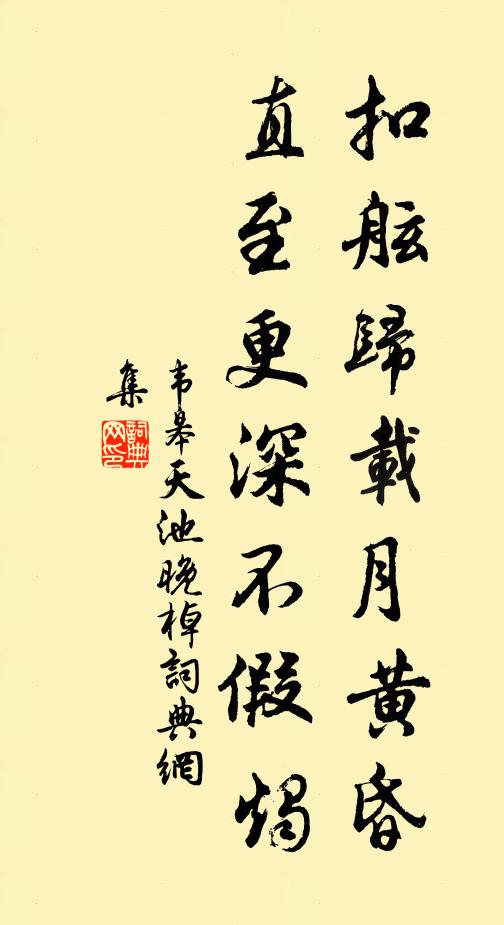 扣舷歸載月黃昏
直至更深不假燭
韦皋天池晚棹詞典網
集
詞典
网印